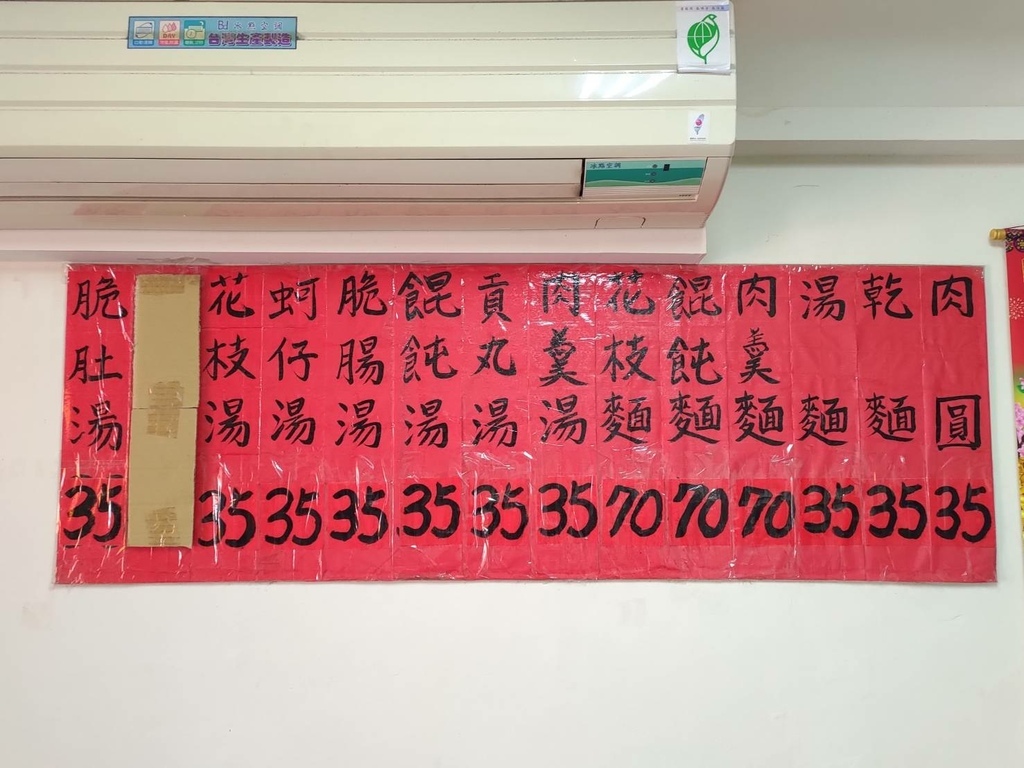 台灣生產製造
冰點空調
肉圓 35
乾麵 35
湯麵 35
肉羹麵 70
餛飩麵 70
花枝麵 70
肉羹湯 35
貢丸湯 35
餛飩湯 35
脆腸湯 35
蚵仔湯 35
花枝湯 35
脆肚湯 35